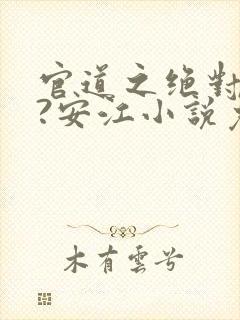 官道之绝對
?安江小説
木有雲兮